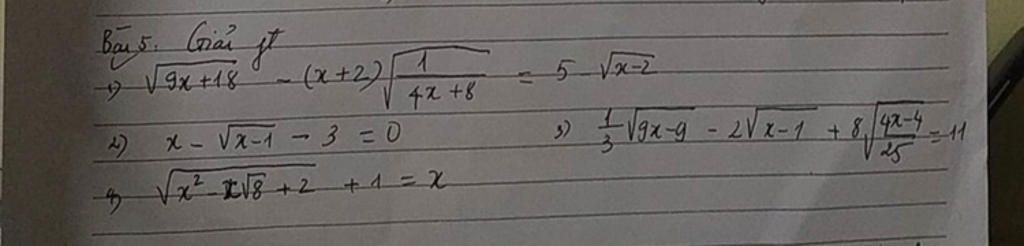 Bài 5. Giải pt
1) √(9x+18) - (x+2)√(1/(4x+8)) = 5 - √(x-2)
2) x - √(x-1) - 3 = 0 3) 1/3 √(9x-9) - 2√(x-1) + 8√((4x-4)/25) = 11
4) √(x² - x√8 + 2) + 1 = x